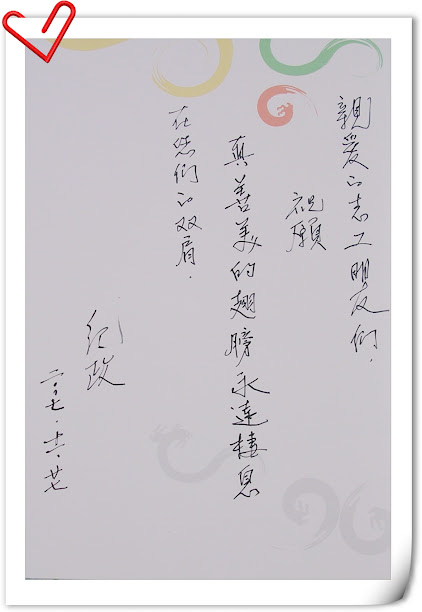 親愛的志工朋友們.
祝願
真善美的翅膀永遠棲息
在您們的双肩.
紀政
二〇〇七.十二.廿七